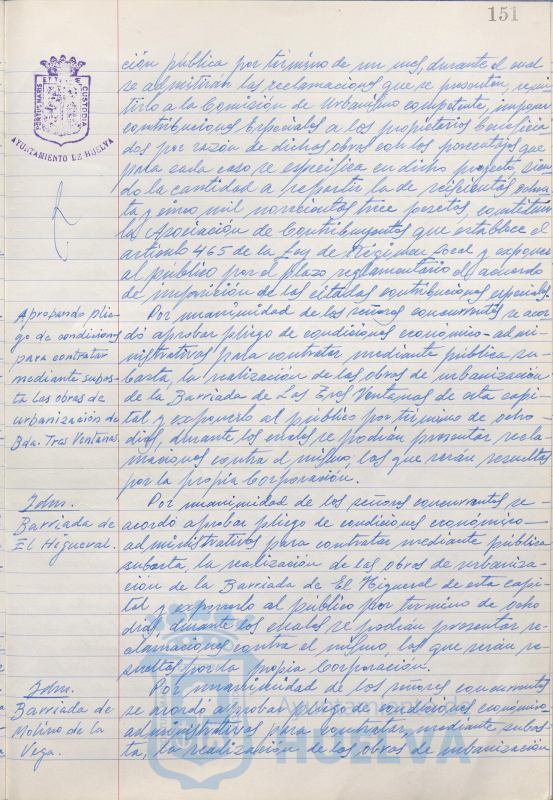 151
PORTUS MARIS ET TERRE CUSTODIA
AYUNTAMIENTO DE HUELVA
ción pública por término de un mes, durante el cual
se admitirán las reclamaciones que se presenten, remi-
tirlo a la Comisión de Urbanismo competente, imponer
contribuciones Especiales a los propietarios beneficia
dos por razón de dichas obras con los porcentajes que
para cada caso se especifica en dicho proyecto, sien
do la cantidad a repartir la de seiscientas ochen
ta y cinco mil novecientas trece pesetas, constituir
la Asociación de Contribuyentes que establece el
artículo 465 de la Ley de Régimen Local y exponer
al público por el plazo reglamentario el acuerdo
de imposición de las citadas contribuciones especiales.
Aprobando plie-
go de condiciones
para contratar
mediante subas-
ta las obras de
urbanización de
Bda. Tres Ventanas.
Por unanimidad de los señores concurrentes se acor
dó aprobar pliego de condiciones económico-admi-
nistrativas para contratar mediante pública su-
basta, la realización de las obras de urbanización
de la Barriada de Las Tres Ventanas de esta capi-
tal y exponerlo al público por término de ocho
días, durante los cuales se podrán presentar recla-
maciones contra el mismo, las que serán resueltas
por la propia Corporación.
Idm.
Barriada de
El Higueral.
Por unanimidad de los señores concurrentes se
acordó aprobar pliego de condiciones económico-
administrativas para contratar mediante pública
subasta, la realización de las obras de urbaniza-
ción de la Barriada de El Higueral de esta capi-
tal y exponerlo al público por término de ocho
días, durante los cuales se podrán presentar re-
clamaciones contra el mismo, las que serán re-
sueltas por la propia Corporación.
Idm.
Barriada de
Molino de la
Vega.
Por unanimidad de los señores concurrentes
se acordó aprobar pliego de condiciones económico-
administrativas para contratar, mediante subas-
ta, la realización de las obras de urbanización
Ayuntamiento de
HUELVA